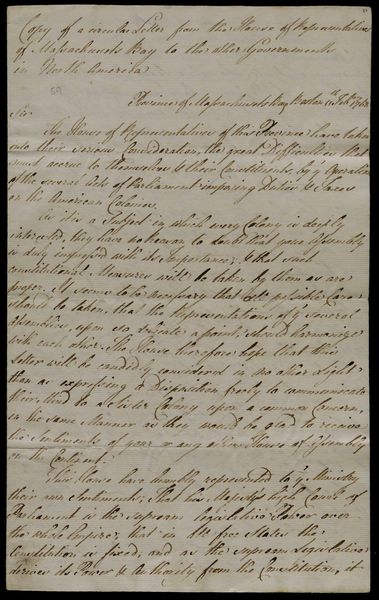 Copy of a circular Letter from the House of Representatives
of Massachusetts Bay to the other Governments
in North America
59
Province of Massachusetts Bay Boston 11th Febry 1768
Sir
The House of Representatives of this Province have taken
into their serious Consideration, the great Difficulties that
must accrue to themselves & their Constituents, by ye Operation
of the several Acts of Parliament imposing Duties & Taxes
on the American Colonies.
As it is a Subject in which every Colony is deeply
interested, they have no reason to doubt that your Assembly
is duly impress'd with its Importance; & that such
constitutional Measures will be taken by them as are
proper. It seems to be necessary that all possible Care
should be taken, that the Representations of ye several
Assemblies, upon so delicate a point, should harmonize
with each other: The House therefore hope that this
Letter will be candidly considered in no other Light
than as expressing a Disposition freely to communicate
their Mind to a Sister Colony, upon a common Concern,
in the same Manner as they would be glad to receive
the Sentiments of your or any other House of Assembly
on the Continent.
This House have humbly represented to ye Ministry
their own Sentiments; That his Majesty's high Court of
Parliament is the supream legislative Power over
the whole Empire; that in all free States the
Constitution is fixed; and as the supream Legislative
derives its Power & Authority from the Constitution, it